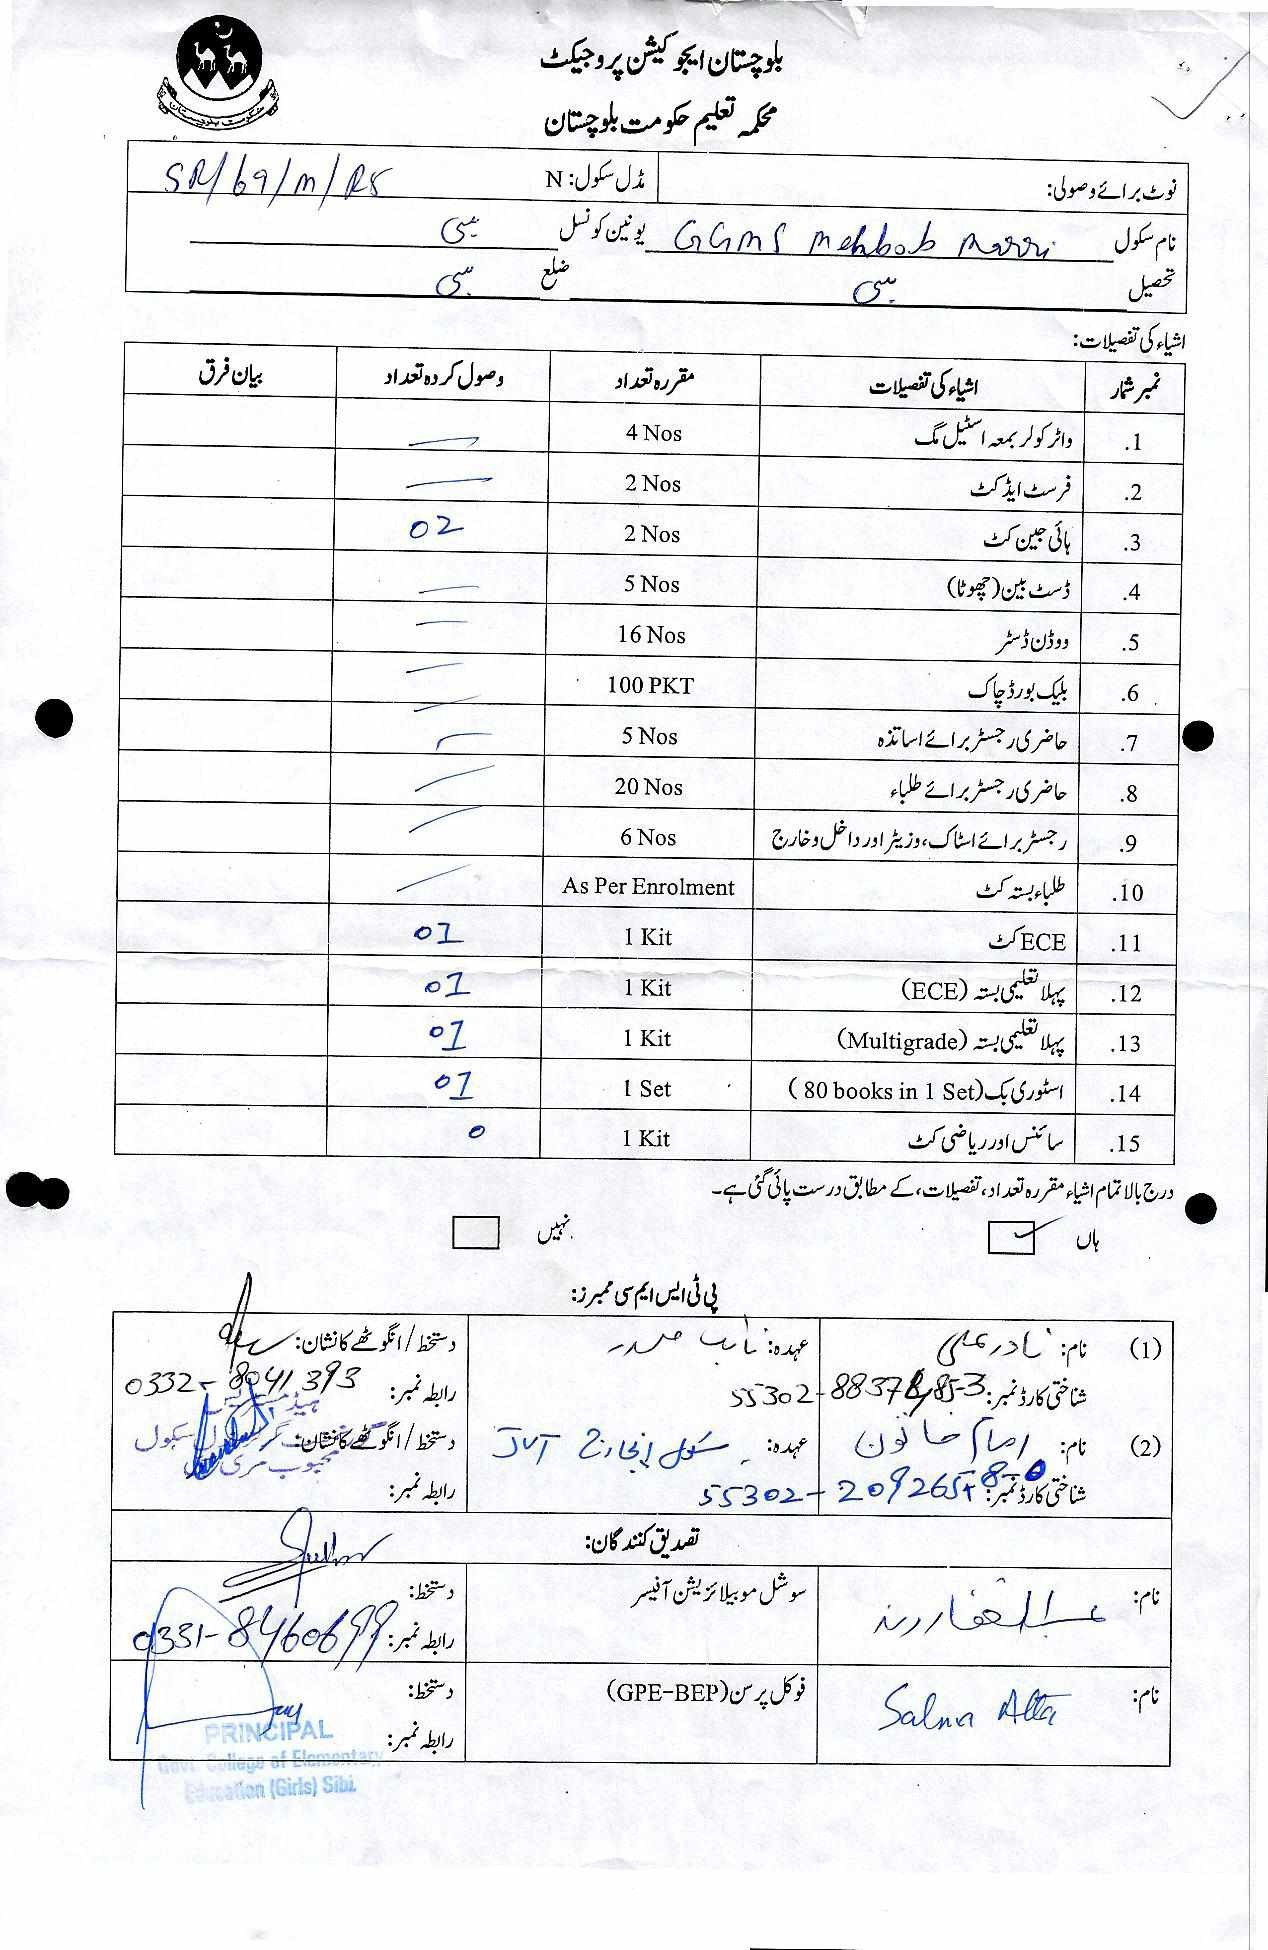 بلوچستان ایجوکیشن پروجیکٹ
محکمہ تعلیم حکومت بلوچستان
حکومت بلوچستان
نوٹ برائے وصولی: مڈل سکول: N SR/69/m/RS
نام سکول GGMS Mehbob Marri یونین کونسل سبی
تحصیل سبی ضلع سبی
اشیاء کی تفصیلات:
نمبر شمار اشیاء کی تفصیلات مقررہ تعداد وصول کردہ تعداد بیان فرق
1. واٹر کولر بمعہ اسٹیل مگ 4 Nos —
2. فرسٹ ایڈ کٹ 2 Nos —
3. ہائی جین کٹ 2 Nos 02
4. ڈسٹ بین (چھوٹا) 5 Nos —
5. ووڈن ڈسٹر 16 Nos —
6. بلیک بورڈ چاک 100 PKT —
7. حاضری رجسٹر برائے اساتذہ 5 Nos —
8. حاضری رجسٹر برائے طلباء 20 Nos —
9. رجسٹر برائے اسٹاک، وزیٹر اور داخل و خارج 6 Nos —
10. طلباء بستہ کٹ As Per Enrolment —
11. ECE کٹ 1 Kit 01
12. پہلا تعلیمی بستہ (ECE) 1 Kit 01
13. پہلا تعلیمی بستہ (Multigrade) 1 Kit 01
14. اسٹوری بک (80 books in 1 Set) 1 Set 01
15. سائنس اور ریاضی کٹ 1 Kit 0
درج بالا تمام اشیاء مقررہ تعداد، تفصیلات، کے مطابق درست پائی گئی ہے۔
ہاں ✓ نہیں
پی ٹی ایس ایم سی ممبرز:
(1) نام: نادر علی عہدہ: نائب صدر دستخط / انگوٹھے کا نشان:
شناختی کارڈ نمبر: 55302- رابطہ نمبر: 0332-8041393
(2) نام: امام خاتون عہدہ: سکول انچارج JVT دستخط / انگوٹھے کا نشان:
شناختی کارڈ نمبر: 55302- رابطہ نمبر:
ہیڈ مسٹریس
سکول
محبوب مری
تصدیق کنندگان:
نام: عبدالغفار رند سوشل موبیلائزیشن آفیسر دستخط:
رابطہ نمبر: 0331-8460699
نام: Salma Alta فوکل پرسن (GPE-BEP) دستخط:
رابطہ نمبر:
PRINCIPAL
Govt. College of Elementary
Education (Girls) Sibi.